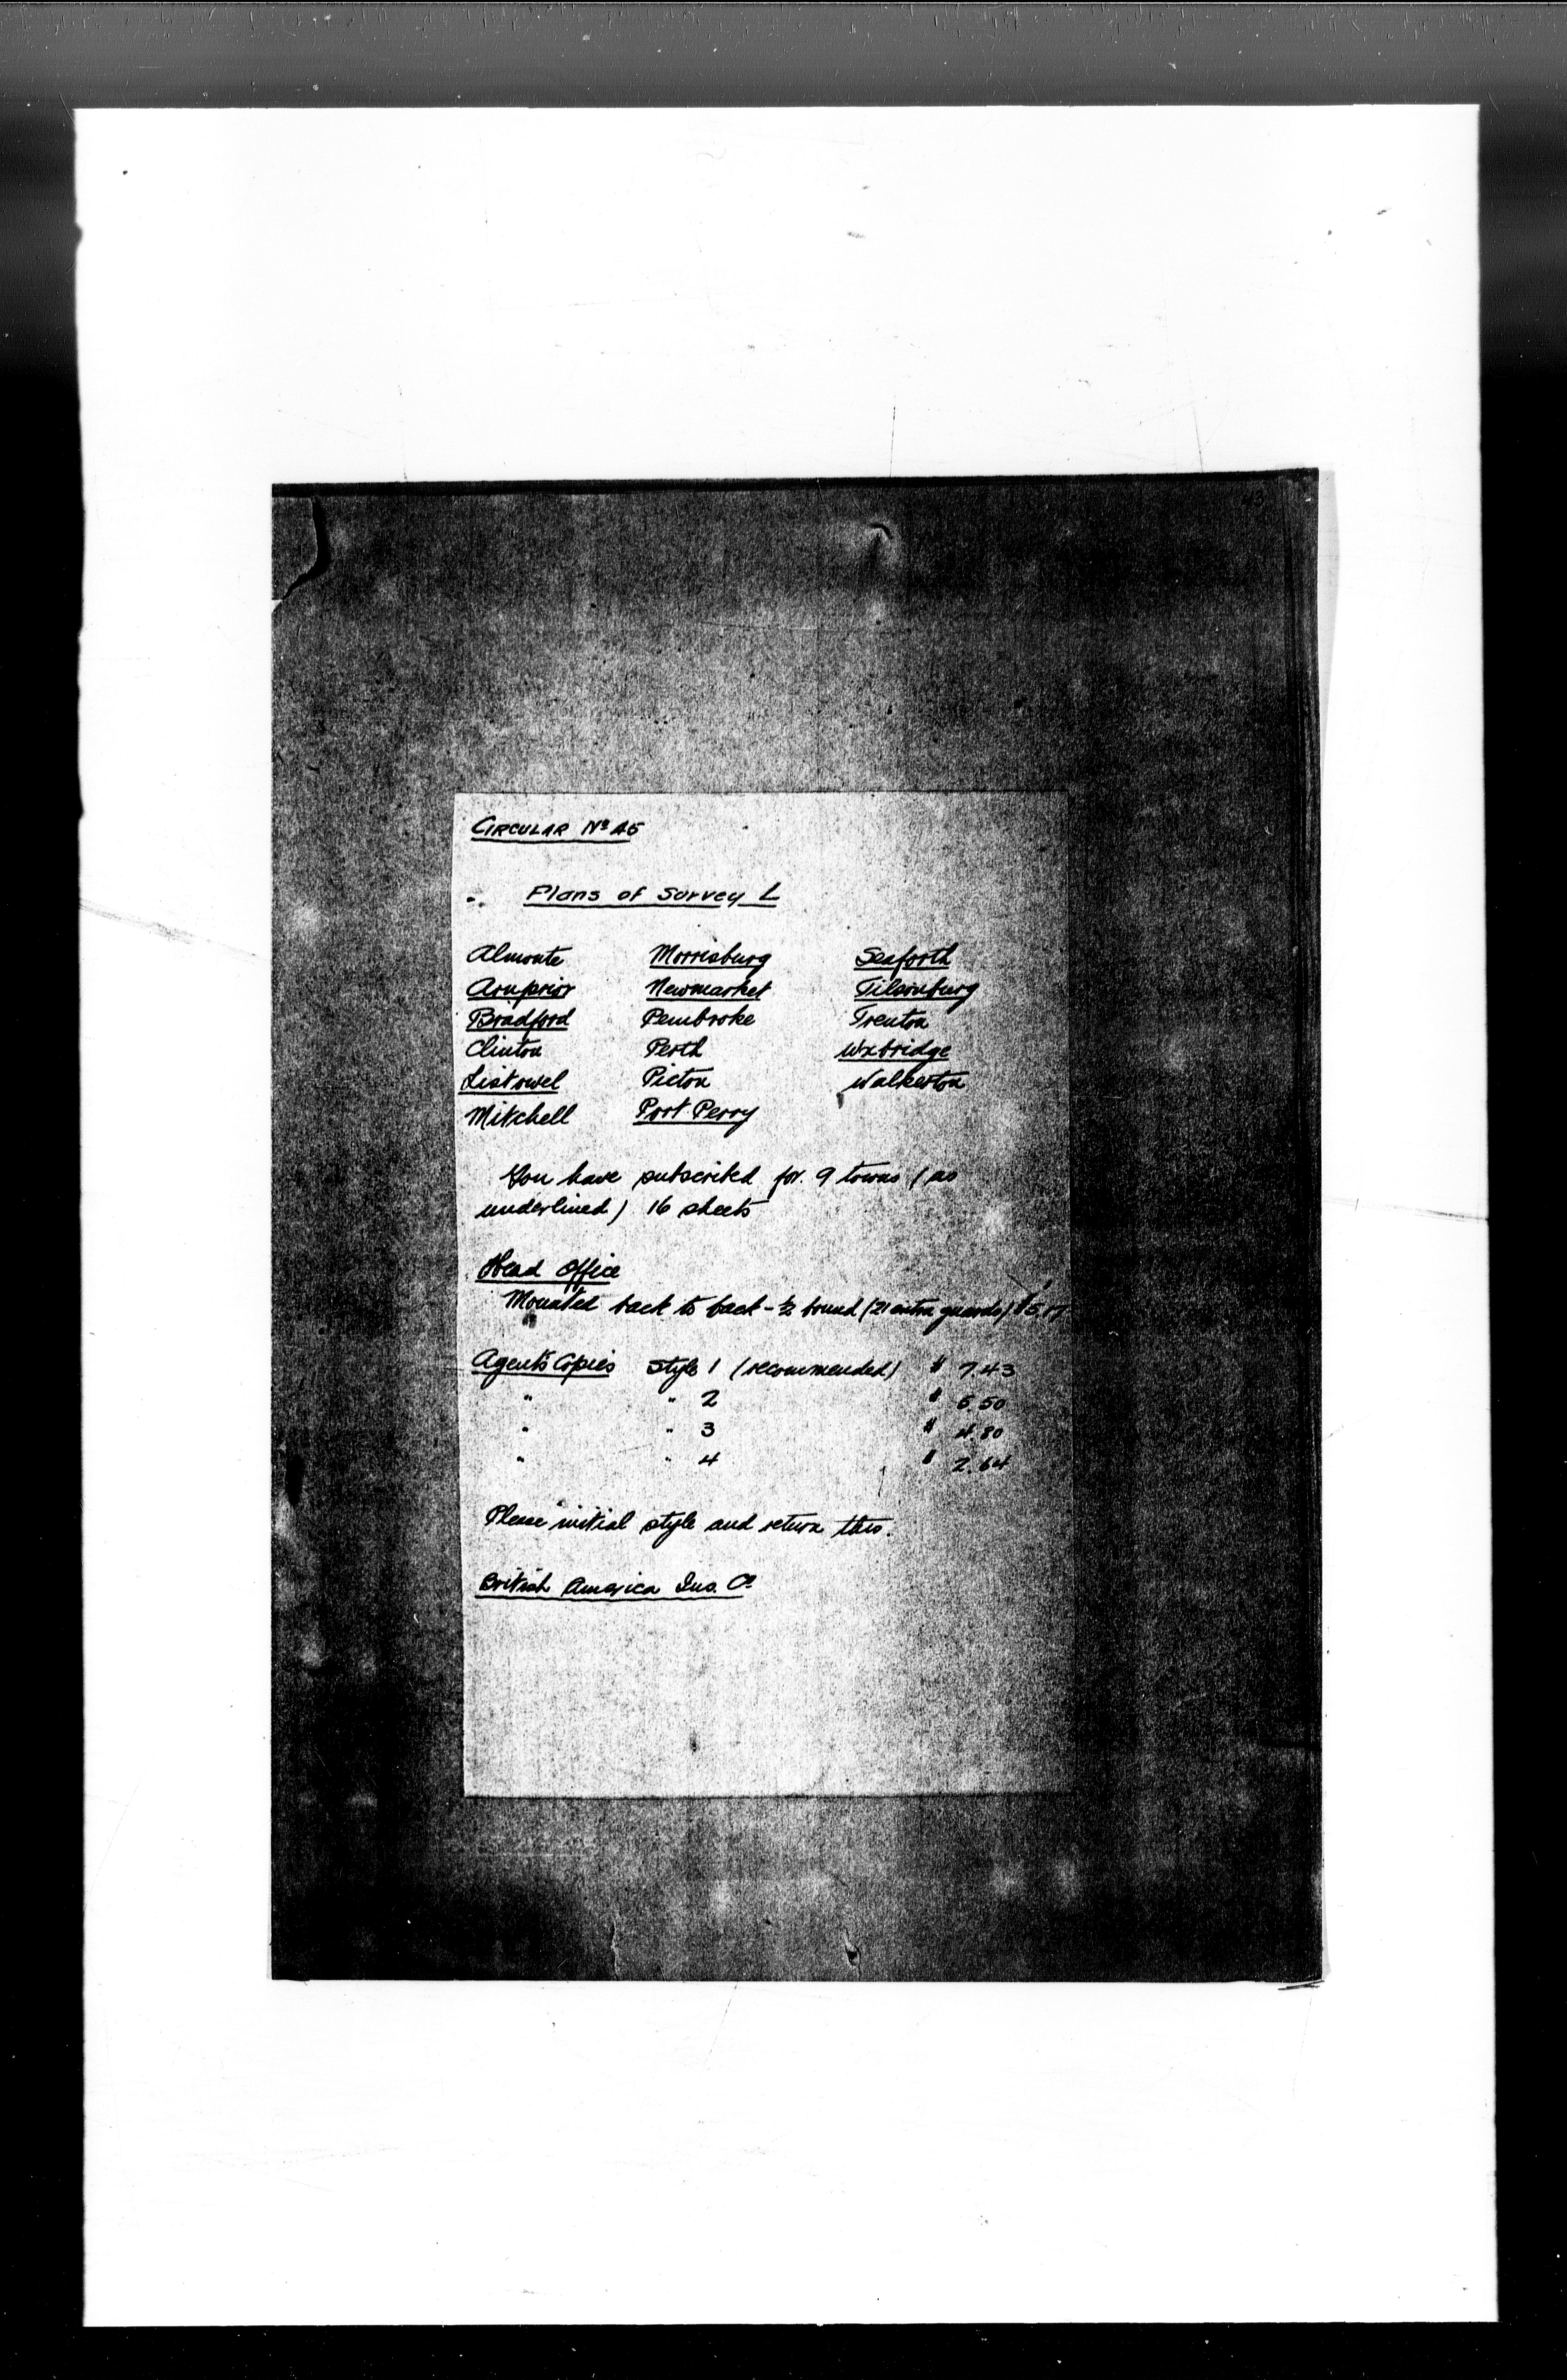 43
CIRCULAR Nº 45
Plans of Survey L
Almonte Morrisburg Seaforth
Arnprior Newmarket Tilsonburg
Bradford Pembroke Trenton
Clinton Perth Uxbridge
Listowel Picton Walkerton
Mitchell Port Perry
You have subscribed for 9 towns (as
underlined) 16 sheets
Head Office
Mounted back to back - ½ bound (21 extra guards) $5.17
Agent's Copies Style 1 (recommended) $ 7.43
" " 2 " 5.50
" " 3 $ 4.80
" " 4 $ 2.64
Please initial style and return this.
British America Ins. Co